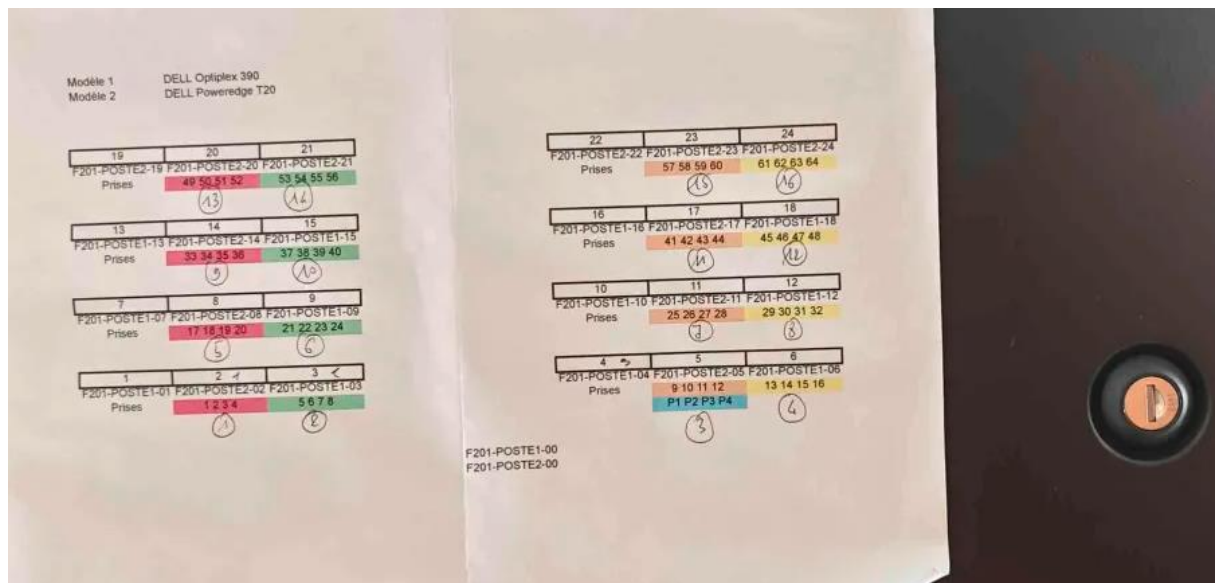 Modèle 1 DELL Optiplex 390
Modèle 2 DELL Poweredge T20
19 20 21
F201-POSTE2-19 F201-POSTE2-20 F201-POSTE2-21
Prises 49 50 51 52 53 54 55 56
13 14
13 14 15
F201-POSTE1-13 F201-POSTE2-14 F201-POSTE1-15
Prises 33 34 35 36 37 38 39 40
9 10
7 8 9
F201-POSTE1-07 F201-POSTE2-08 F201-POSTE1-09
Prises 17 18 19 20 21 22 23 24
5 6
1 2 1 3 2
F201-POSTE1-01 F201-POSTE2-02 F201-POSTE1-03
Prises 1 2 3 4 5 6 7 8
1 2
22 23 24
F201-POSTE2-22 F201-POSTE2-23 F201-POSTE2-24
Prises 57 58 59 60 61 62 63 64
15 16
16 17 18
F201-POSTE1-16 F201-POSTE2-17 F201-POSTE1-18
Prises 41 42 43 44 45 46 47 48
11 12
10 11 12
F201-POSTE1-10 F201-POSTE2-11 F201-POSTE1-12
Prises 25 26 27 28 29 30 31 32
7 8
4 3 5 6
F201-POSTE1-04 F201-POSTE2-05 F201-POSTE1-06
Prises 9 10 11 12 13 14 15 16
P1 P2 P3 P4
3 4
F201-POSTE1-00
F201-POSTE2-00